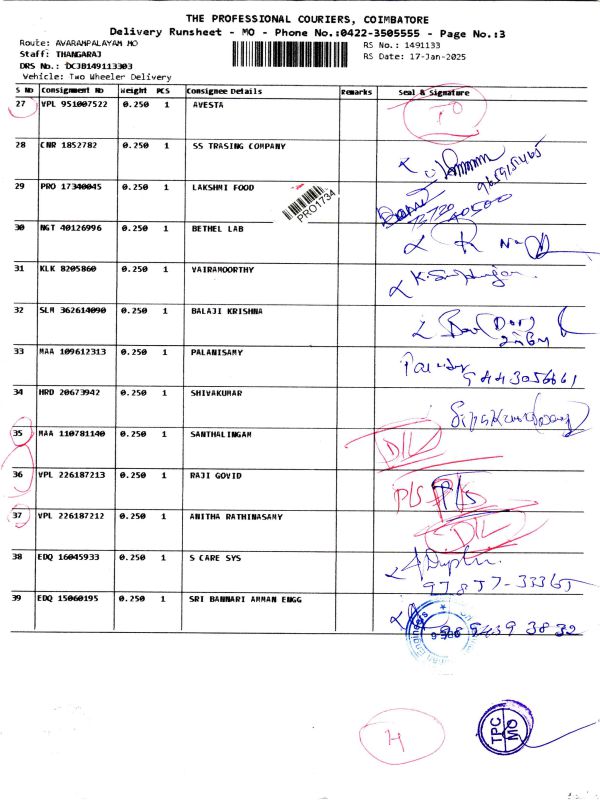 THE PROFESSIONAL COURIERS, COIMBATORE
Delivery Runsheet - MO - Phone No.:0422-3505555 - Page No.:3
Route: AVARAMPALAYAM MO
RS No.: 1491133
Staff: THANGARAJ
RS Date: 17-Jan-2025
DRS No.: DCJB149113303
Vehicle: Two Wheeler Delivery
S No Consignment No Weight PCS Consignee Details Remarks Seal & Signature
27 VPL 951007522 0.250 1 AVESTA
28 CNR 1852782 0.250 1 SS TRASING COMPANY
9659151465
29 PRO 17340045 0.250 1 LAKSHMI FOOD
PRO1734
72720 40500
30 NGT 40126996 0.250 1 BETHEL LAB
31 KLK 8205860 0.250 1 VAIRAMOORTHY
32 SLM 362614090 0.250 1 BALAJI KRISHNA
33 MAA 109612313 0.250 1 PALANISAMY
9443056661
34 HRD 20673942 0.250 1 SHIVAKUMAR
35 MAA 110781140 0.250 1 SANTHALINGAM
D/L
36 VPL 226187213 0.250 1 RAJI GOVID
P/S P/S
37 VPL 226187212 0.250 1 ANITHA RATHINASAMY
D/L
38 EDQ 16045933 0.250 1 S CARE SYS
97857-33365
39 EDQ 15060195 0.250 1 SRI BANNARI AMMAN ENGG
4
TPC
MO